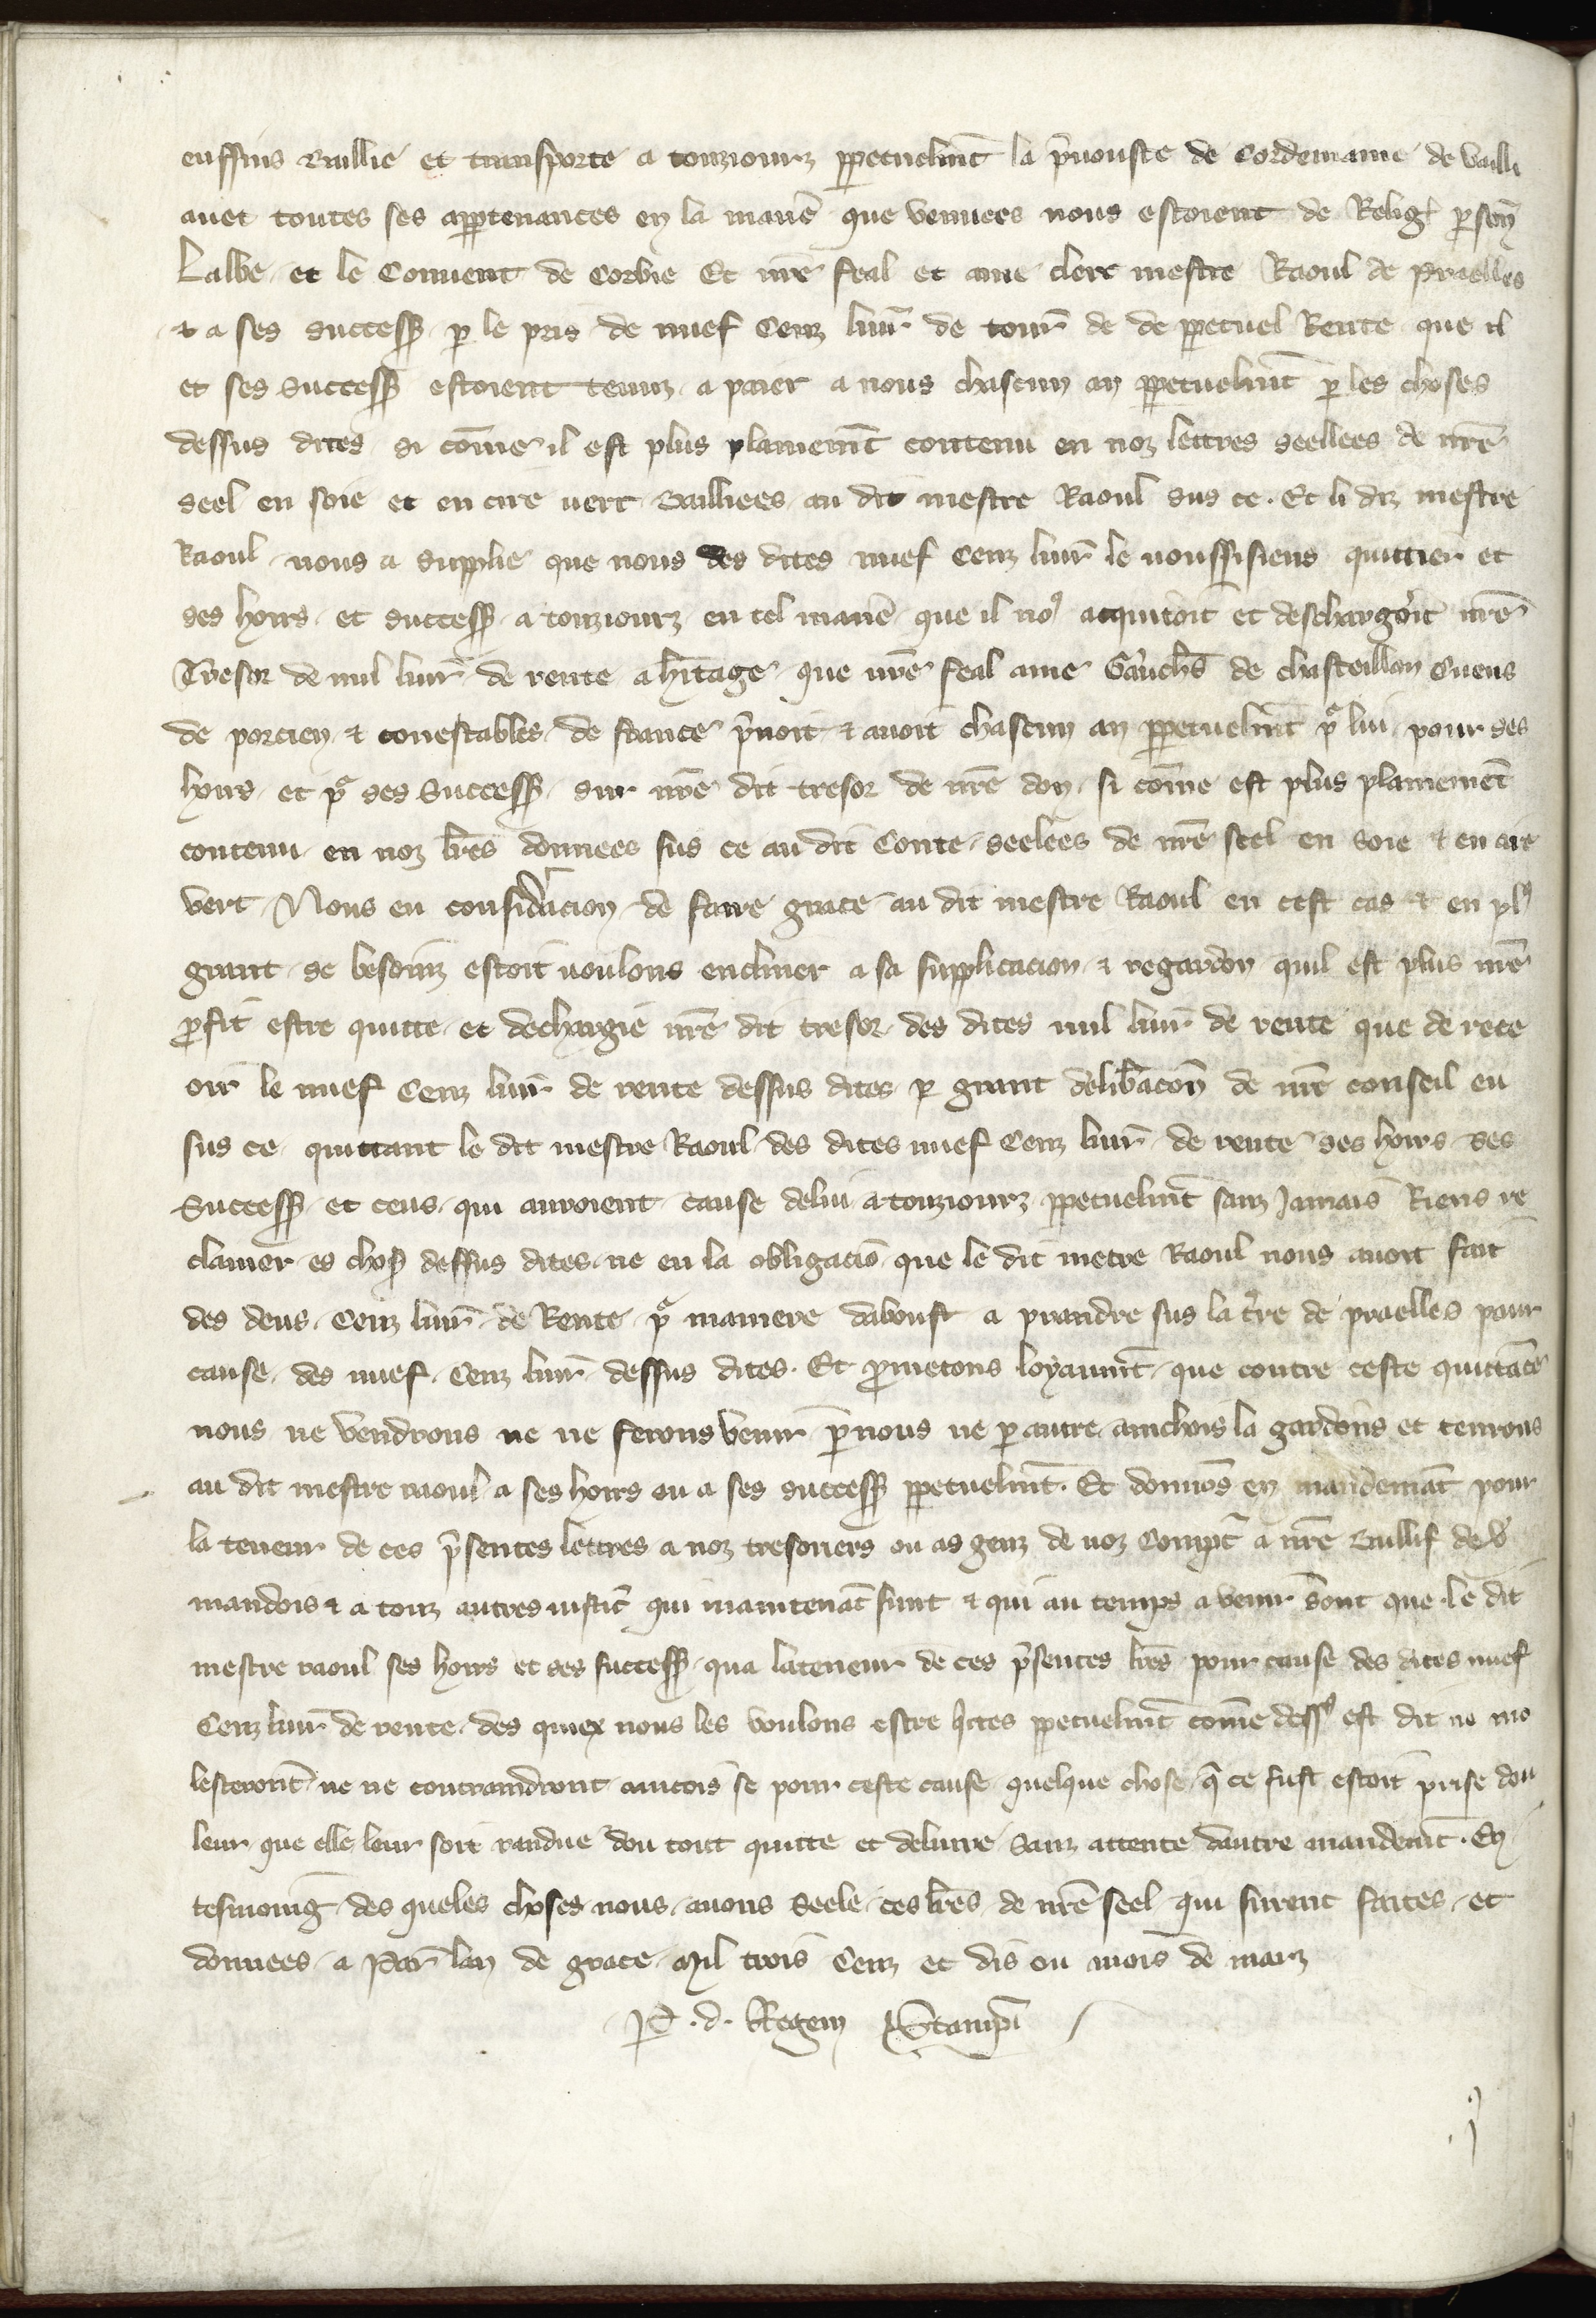 eussiens baillié et transporté a touziourz ꝑpetuelmt̃ la p̃uosté de Cordemaine de bailli
auec toutes ses aꝑtenances en la manẽ que venuees nous estoient de Relig̃ ꝑson̄
Labbe et le Conuent de Corbie Et nr̃e feal et ame clerc mestre Raoul de praelles
⁊ a ses Successꝭ ꝑ le pris de nuef Cenz liur̃ de tour̃ de de ꝑpetuel Rente que il
et ses Successꝭ estoient tenuz a paier a nous chascun an ꝑpetuelmt̃ ꝑ les choses
dessus dites si com̃e il est plus plainemt̃ contenu en noz lettres seellees de nr̃e
seel en soie et en cire vert bailliees au dit mestre Raoul sus ce. Et li diz mestre
Raoul nous a supplie que nous des dites nuef Cenz liur̃ le voussisiens quittier et
ses hoirs et successꝭ a touziourz en tel manẽ que il noꝰ acquitoit et deschargoit nr̃e
Tresor de mil liur̃ de rente a hr̃itage que nr̃e feal ame Gauch̃s de chasteillon Cuens
de porcien ⁊ conestables de france p̃noit ⁊ auoit chascun an ꝑpetuelmt̃ pᵃ lui pour ses
hoirs et pᵃ ses Successꝭ sur nr̃e dit tresor de nr̃e don si com̃e est plus plainement
contenu en noz lr̃es donnees sus ce au dit Conte seelees de nr̃e seel en soie ⁊ en cire
vert Nous en considacion de faire grace au dit mestre Raoul en cest cas ⁊ en plꝰ
grant se besoinz estoit uoulons encliner a sa supplicacion ⁊ regardon quil est plus nr̃e
ꝓfit estre quitte et dechargie nr̃e dit tresor des dites mil liur̃ de rente que de rece
oir le nuef Cenz liur̃ de rente dessus dites ꝑ grant delib̃acon̄ de nr̃e conseil eu
sus ce quittant le dit mestre Raoul des dites nuef Cenz liur̃ de rente ses hoirs ses
Successꝭ et ceus qui auroient cause delui a touziourz ꝑpetuelmt̃ sanz Jamais Riens re
clamer es chosꝭ dessus dites ne en la obligacio̅ que le dit metre Raoul nous auoit fait
des deus Cenz liur̃ de Rente pᵃ maniere daboust a prandre sus la tr̃re de praelles pour
cause des nuef Cenz liur̃ dessus dites. Et ꝓmetons loyaumt̃ que contre ceste quittãce
nous ne vendrons ne ne ferons venir ꝑ nous ne ꝑ autre ainchois la gardons et tenrons
au dit mestre raoul a ses hoirs ou a ses successꝭ ꝑpetuelmt̃. Et donnõs en mandemãt pour
la teneur de ces p̃sentes lettres a noz tresoriers ou as genz de noz Compt̃ a nr̃e Baillif de v̾
mandois ⁊ a touz autres iustic̃ qui maintenãt sunt ⁊ qui au temps a venir s̾ont que le dit
mestre raoul ses hoirs et ses successꝭ qua lateneur de ces p̃sentes lr̃es pour cause des dites nuef
Cenz liur̃ de rente des quiex nous les voulons estre q̃ites ꝑpetuelmt̃ com̃e dessꝰ est dit ne mo
lesteront ne ne contraindront aincois se pour ceste cause quelque chose q̃ ce fust estoit prise dou
leur que elle leur soit randue dou tout quitte et deliure sanz attente dautre mandemt̃. En
tesmoing des queles choses nous auons seele ces lr̃es de nr̃e seel qui furent faites et
donnees a Par̃ lan de grace Mil trois Cenz et dis ou mois de marz
ꝑ. d. Regem P Stampis